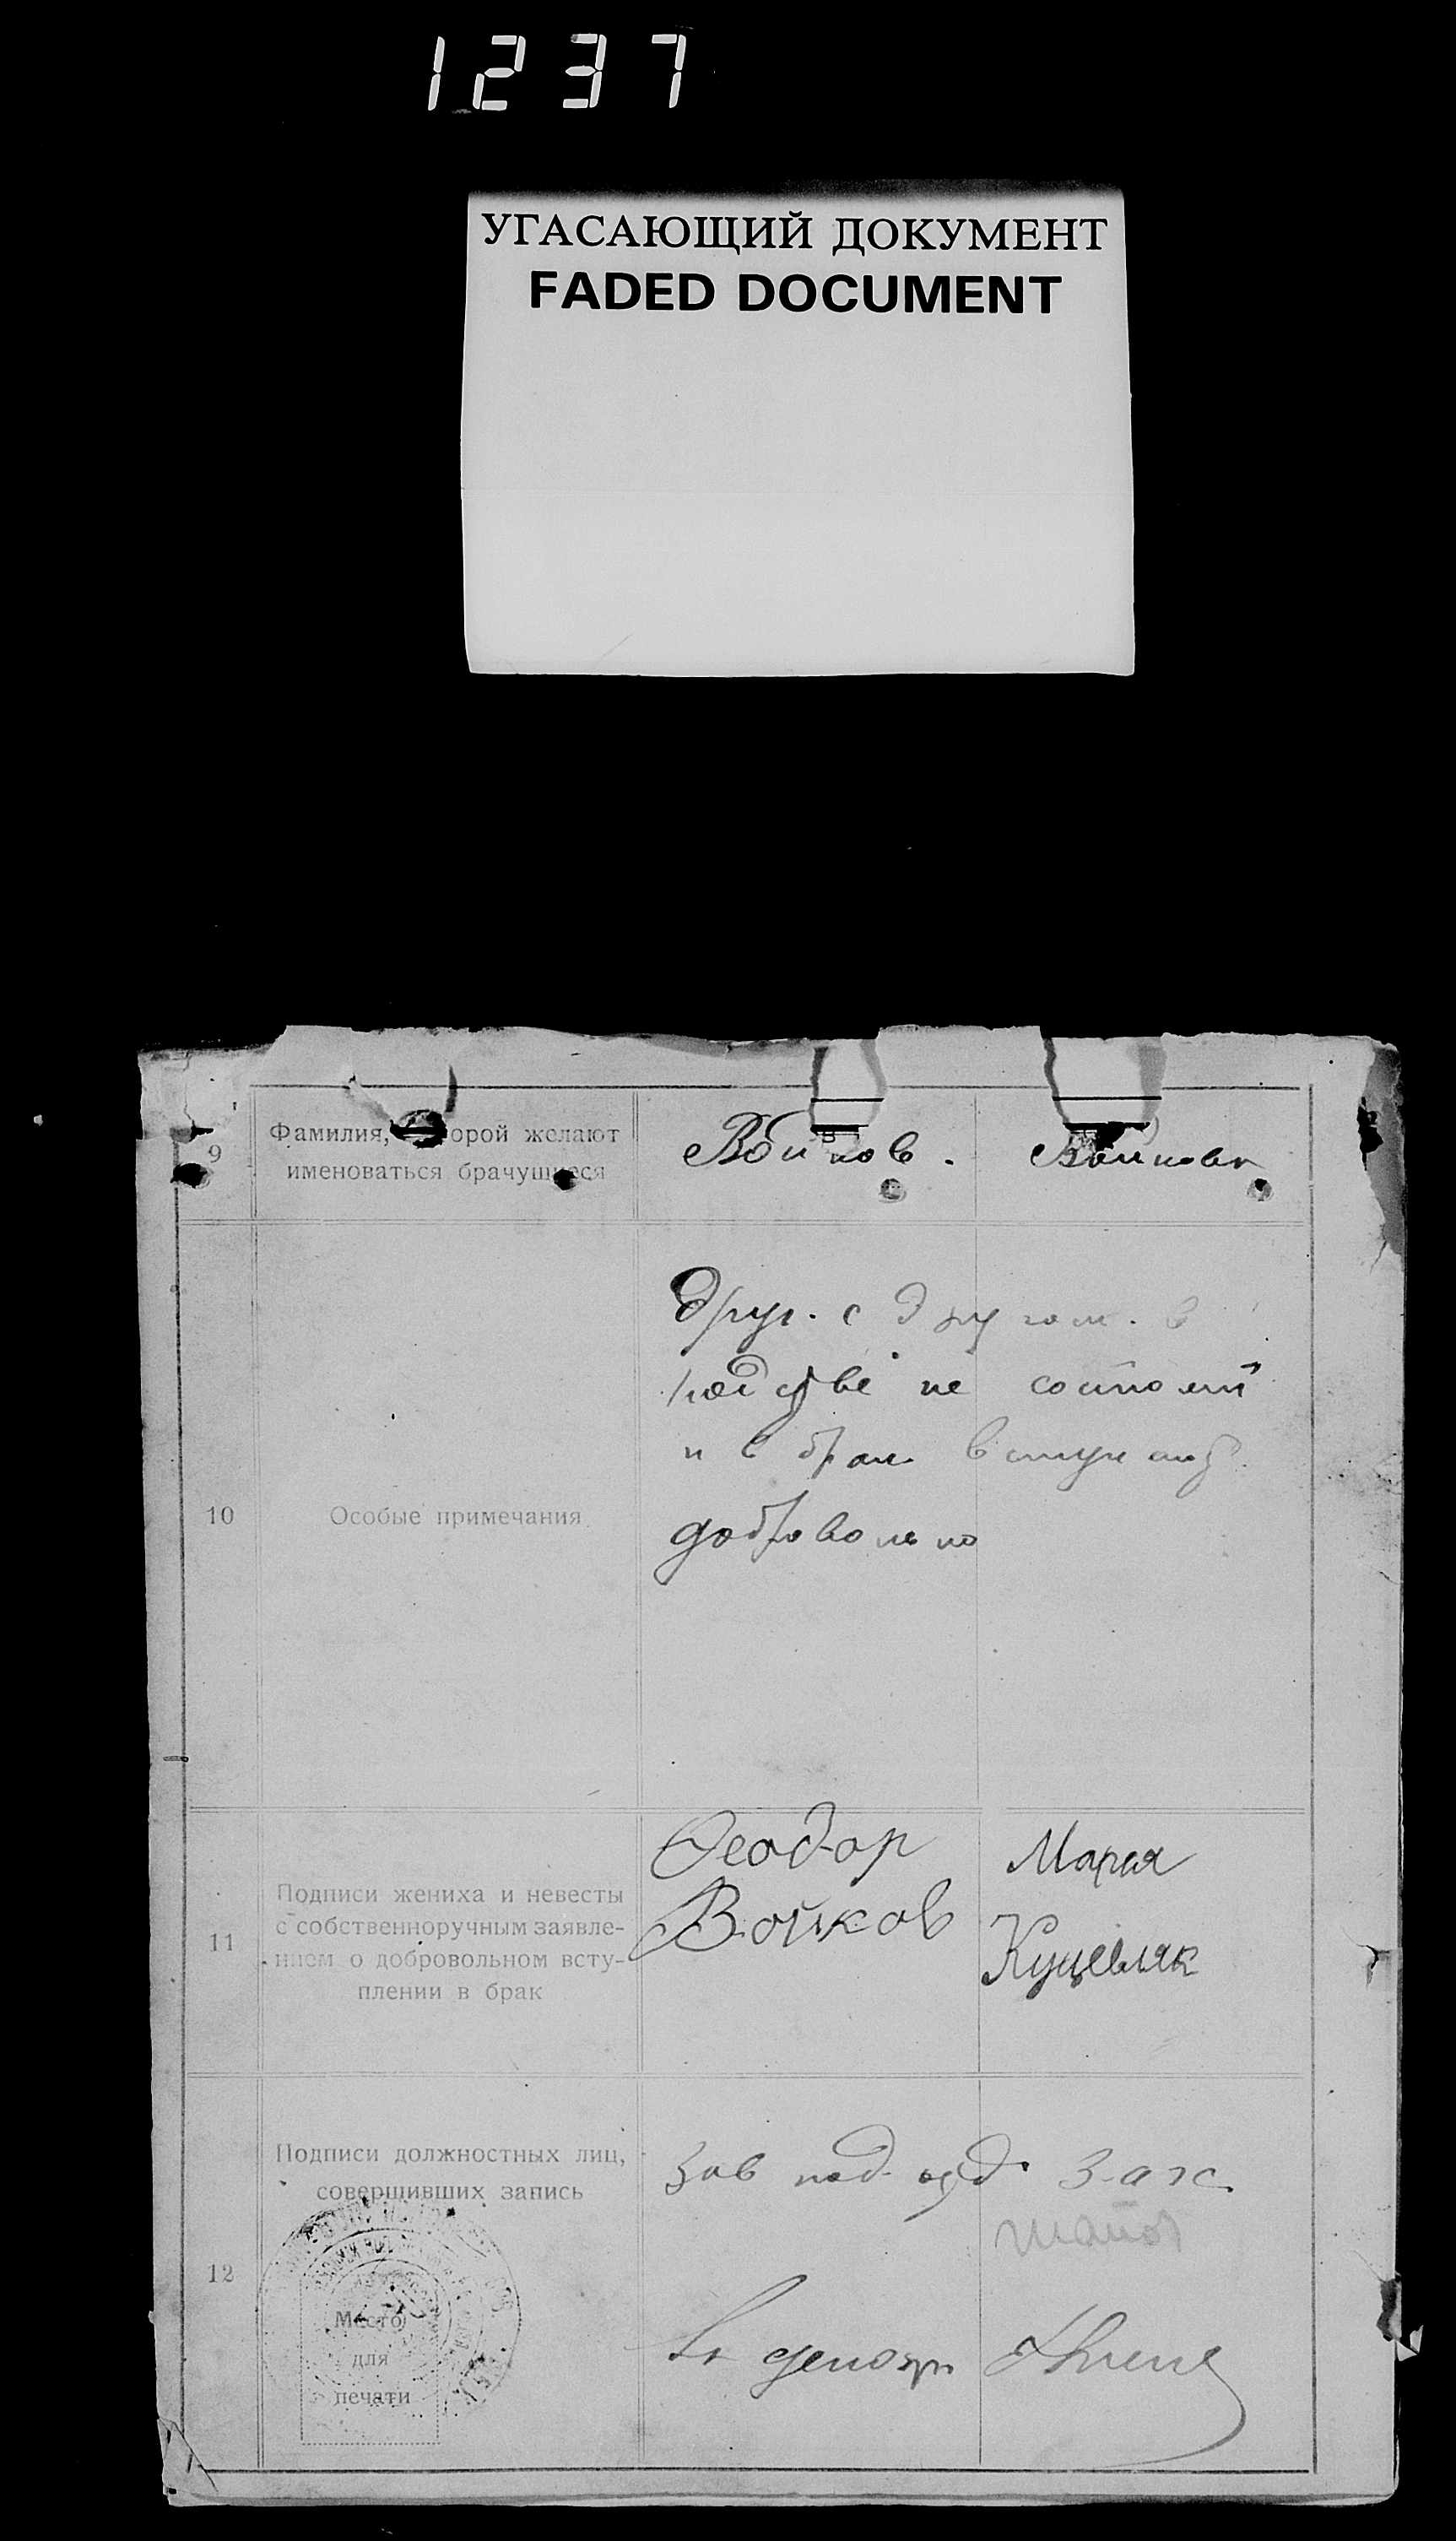 1237
УГАСАЮЩИЙ ДОКУМЕНТ
FADED DOCUMENT
9
Фамилия, орой желают
именоваться брачущиеся
Войков.
Войкова
10
Особые примечания
Друг. с другом. в
родстве не состоят
и в брак вступают
добровольно
11
Подписи жениха и невесты
с собственноручным заявле-
нием о добровольном всту-
плении в брак
Феодор
Войков
Мария
Куцевляк
12
Подписи должностных лиц,
совершивших запись
Место
для
печати
Зав под. отд. загс